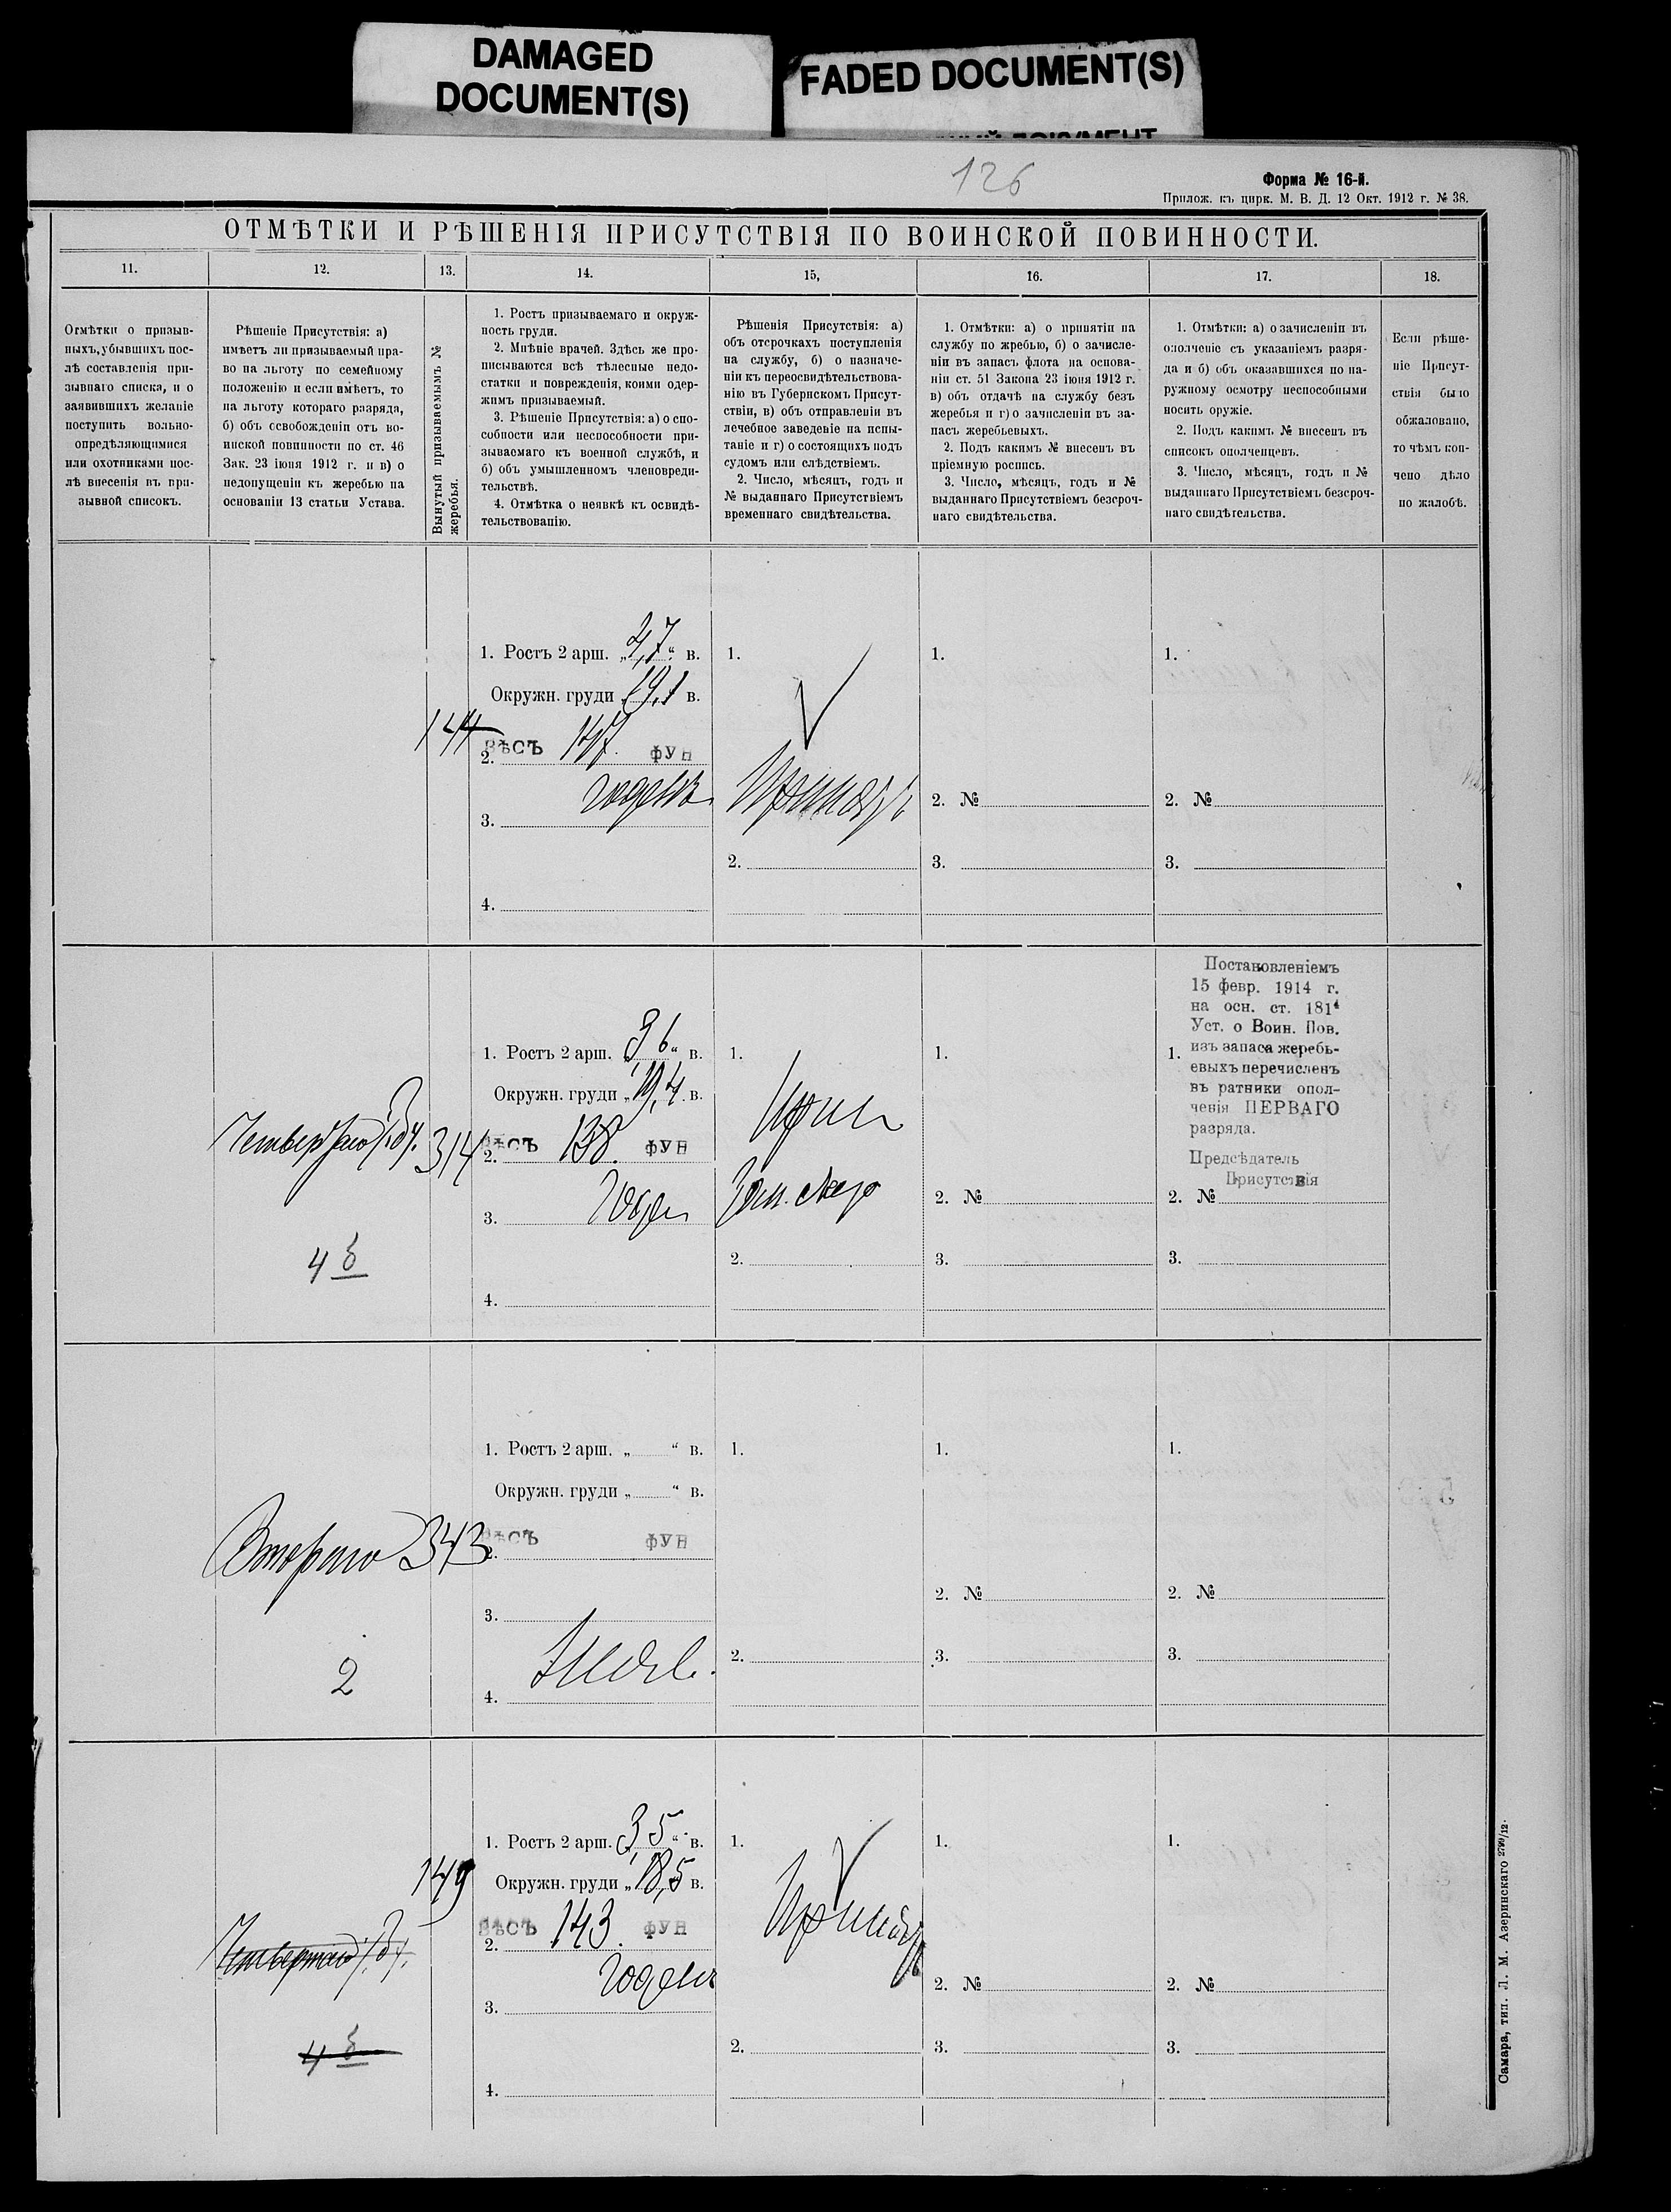 DAMAGED
DOCUMENT(S)
FADED DOCUMENT(S)
126
Форма № 16-й.
Прилож. къ цирк. М. В. Д. 12 Окт. 1912 г. № 38.
ОТМѢТКИ И РѢШЕНІЯ ПРИСУТСТВІЯ ПО ВОИНСКОЙ ПОВИННОСТИ.
11.
Отмѣтки о призыв-
ныхъ, убывшихъ пос-
лѣ составленія при-
зывнаго списка, и о
заявившихъ желаніе
поступить вольно-
опредѣляющимися
или охотниками пос-
лѣ внесенія въ при-
зывной списокъ.
12.
Рѣшеніе Присутствія: а)
имѣетъ ли призываемый пра-
во на льготу по семейному
положенію и если имѣетъ, то
на льготу котораго разряда,
б) объ освобожденіи отъ во-
инской повинности по ст. 46
Зак. 23 іюня 1912 г. и в) о
недопущеніи къ жеребью на
основаніи 13 статьи Устава.
13.
Вынутый призываемымъ №
жеребья.
14.
1. Ростъ призываемаго и окруж-
ность груди.
2. Мнѣніе врачей. Здѣсь же про-
писываются всѣ тѣлесные недо-
статки и поврежденія, коими одер-
жимъ призываемый.
3. Рѣшеніе Присутствія: а) о спо-
собности или неспособности при-
зываемаго къ военной службѣ, и
б) объ умышленномъ членовреди-
тельствѣ.
4. Отмѣтка о неявкѣ къ освидѣ-
тельствованію.
15,
Рѣшенія Присутствія: а)
объ отсрочкахъ поступленія
на службу, б) о назначе-
ніи къ переосвидѣтельствова-
нію въ Губернскомъ Присут-
ствіи, в) объ отправленіи въ
лечебное заведеніе на испы-
таніе и г) о состоящихъ подъ
судомъ или слѣдствіемъ.
2. Число, мѣсяцъ, годъ и
№ выданнаго Присутствіемъ
временнаго свидѣтельства.
16.
1. Отмѣтки: а) о принятіи на
службу по жребью, б) о зачисле-
ніи въ запасъ флота на основа-
ніи ст. 51 Закона 23 іюня 1912 г.
в) объ отдачѣ на службу безъ
жеребья и г) о зачисленіи въ за-
пасъ жеребьевыхъ.
2. Подъ какимъ № внесенъ въ
пріемную роспись.
3. Число, мѣсяцъ, годъ и №
выданнаго Присутствіемъ безсроч-
наго свидѣтельства.
17.
1. Отмѣтки: а) о зачисленіи въ
ополченіе съ указаніемъ разря-
да и б) объ оказавшихся по на-
ружному осмотру неспособными
носить оружіе.
2. Подъ какимъ № внесенъ въ
списокъ ополченцевъ.
3. Число, мѣсяцъ, годъ и №
выданнаго Присутствіемъ безсроч-
наго свидѣтельства.
18.
Если рѣше-
ніе Присут-
ствія было
обжаловано,
то чѣмъ кон-
чено дѣло
по жалобѣ.
144
1. Ростъ 2 арш. „4,7“ в.
Окружн. груди „19,1 в.
ВѢСЪ 147. ФУН
2.
годенъ
3.
4.
1.
Принять
2.
1.
2. №
3.
1.
2. №
3.
Четвертаго /б/.
4 б
314
1. Ростъ 2 арш. „3 6“ в.
Окружн. груди „19,4. в.
ВѢСЪ 138. ФУН
2.
Годен
3.
4.
1.
Прин
2.
1.
2. №
3.
Постановленіемъ
15 февр. 1914 г.
на осн. ст. 181⁴
Уст. о Воин. Пов.
1. изъ запаса жеребь-
евыхъ перечисленъ
въ ратники опол-
ченія ПЕРВАГО
разряда.
Предсѣдатель
Присутствія
2. №
3.
Второго
2
343
1. Ростъ 2 арш. „ “ в.
Окружн. груди „ “ в.
ВѢСЪ ФУН
2.
3.
4.
1.
2.
1.
2. №
3.
1.
2. №
3.
149
Четвертаго /б/.
4 б
1. Ростъ 2 арш. „3 5“ в.
Окружн. груди „18,5 в.
ВѢСЪ 143. ФУН
2.
годенъ
3.
4.
1.
Принять
2.
1.
2. №
3.
1.
2. №
3.
Самара, тип. Л. М. Азеринскаго 2790/12.